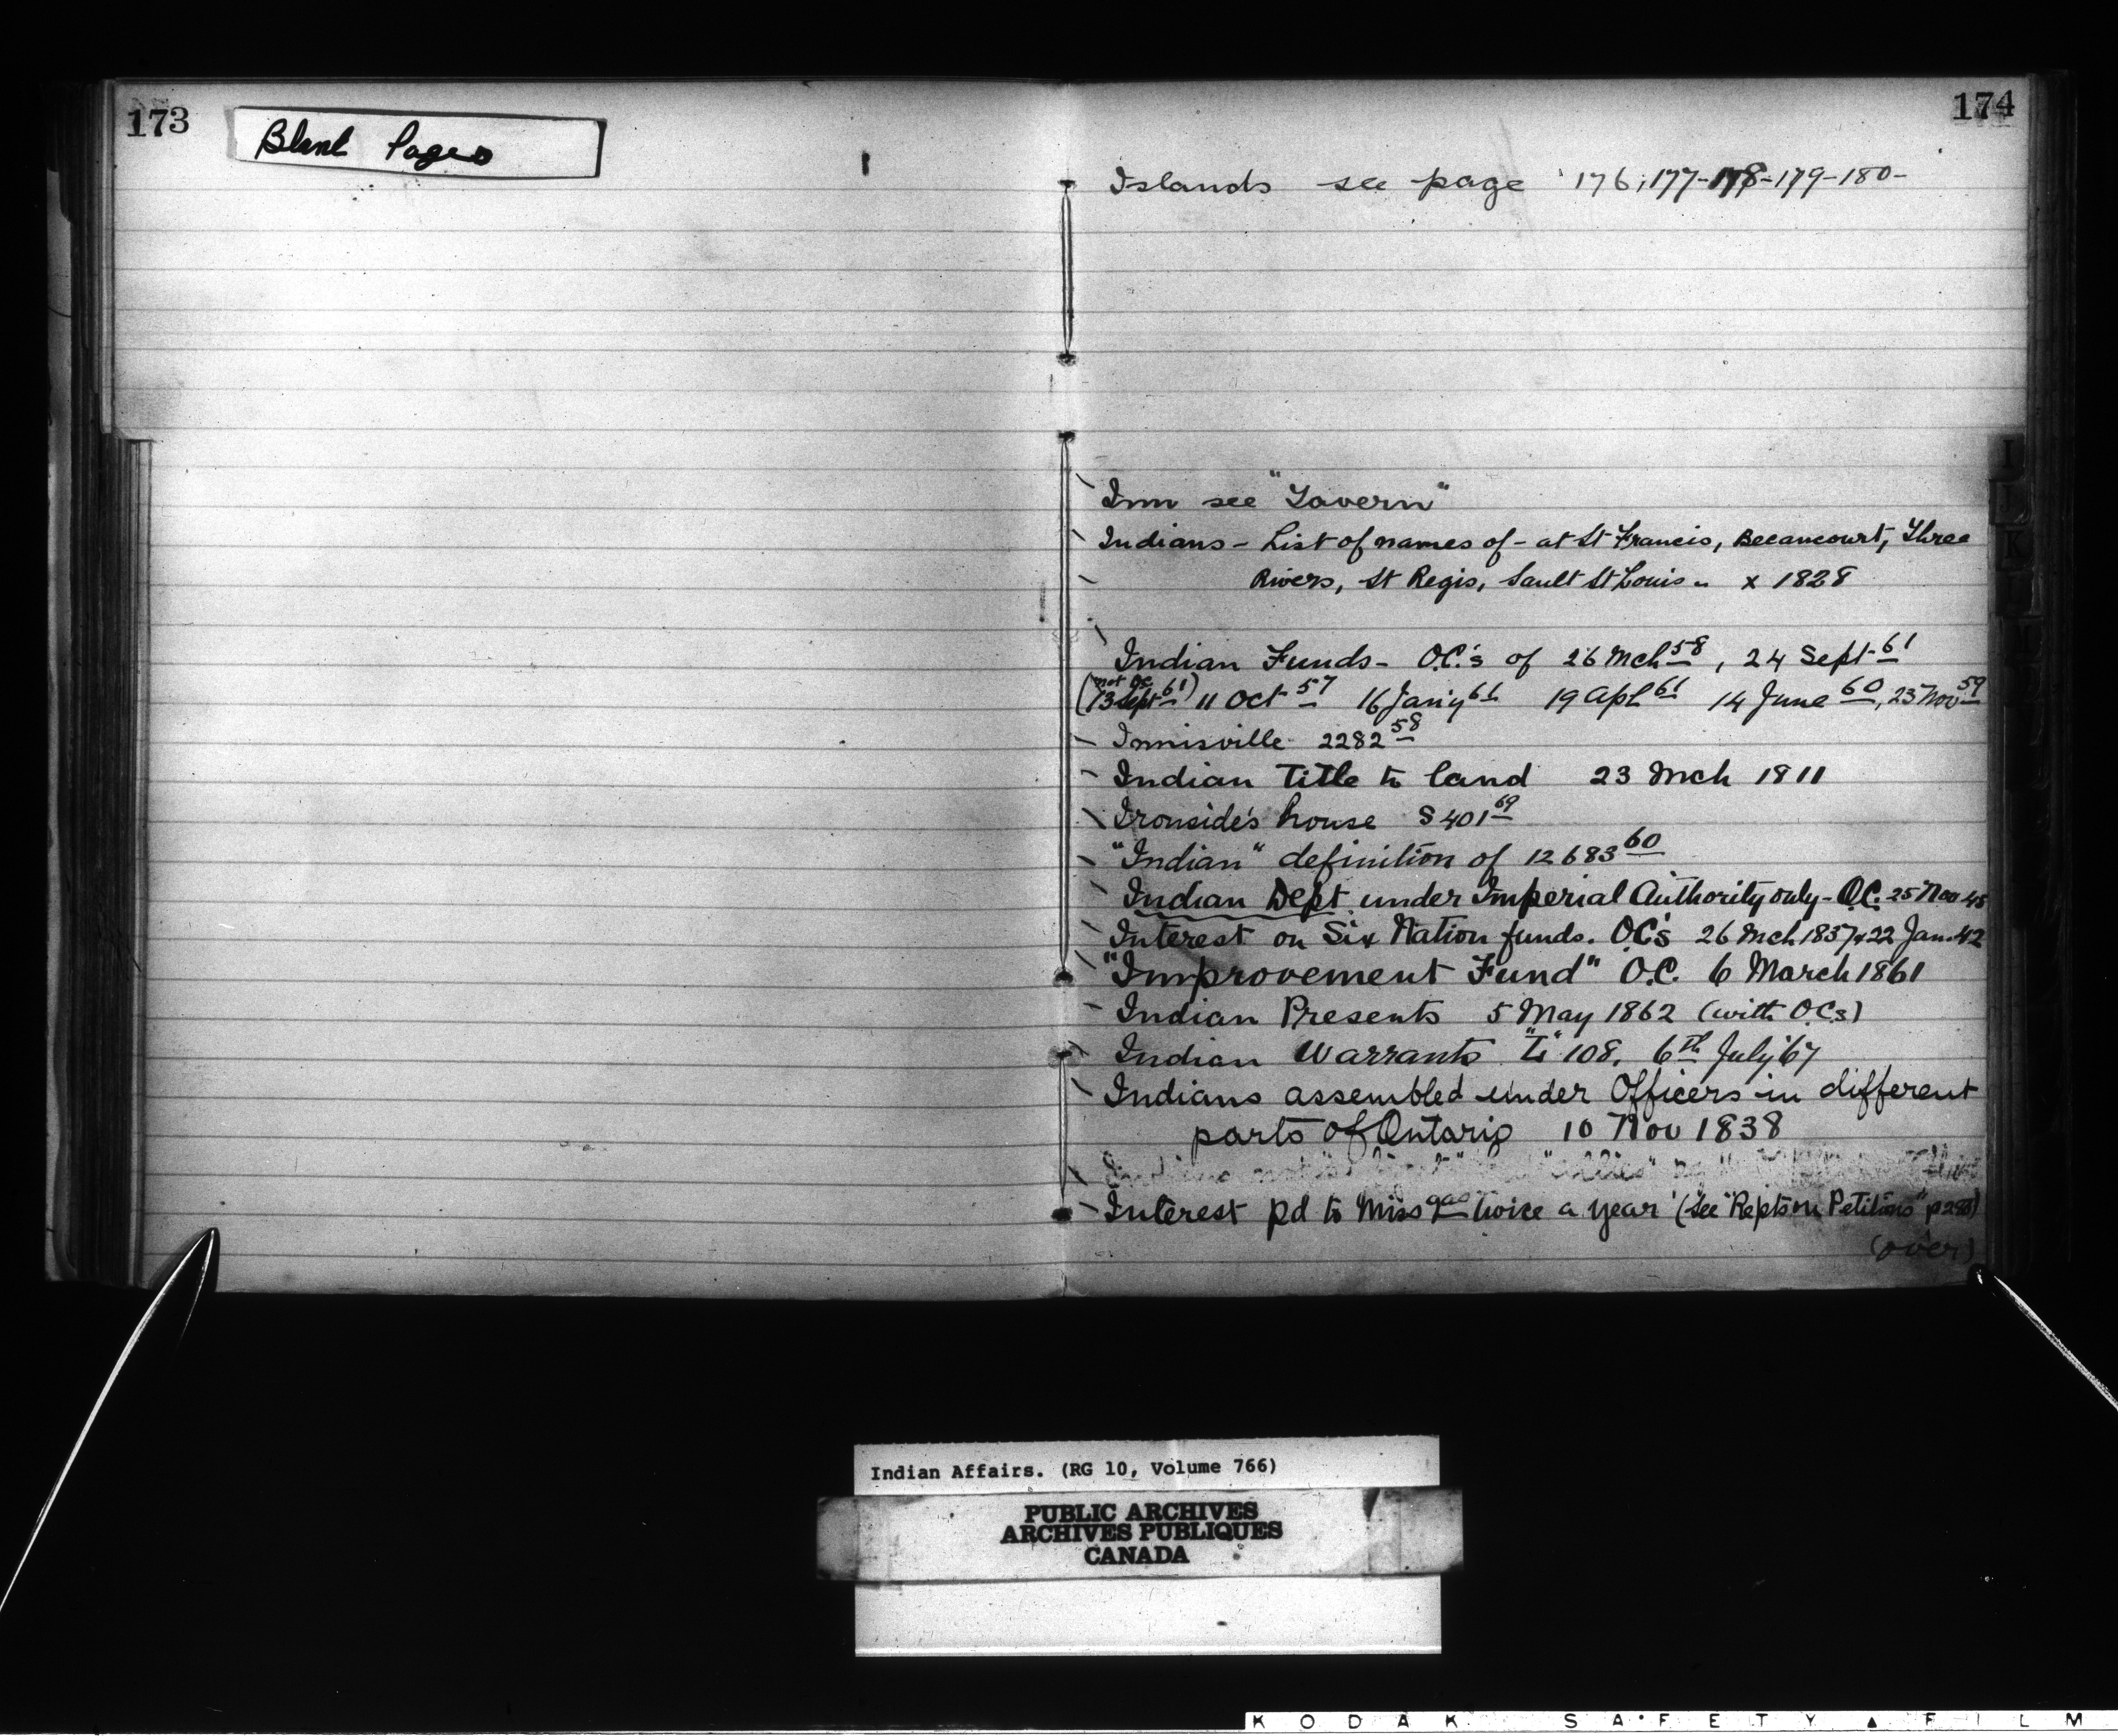 173
Blank Pages
174
Islands see page 176, 177-178-179-180-
Inn see "Tavern"
Indians - List of names of - at St Francis, Becancourt, Three
Rivers, St Regis, Sault St Louis - x 1828
Indian Funds - O.C.'s of 26 Mch 58, 24 Sept 61
(not oc 13 Sept 61) 11 Oct 57 16 Jany 61 19 Apl 61 14 June 60, 23 Nov 59
Innisville 2282 58
Indian Title to land 23 Mch 1811
Ironside's house S 401 69
"Indian" definition of 12683 60
Indian Dept under Imperial Authority only - O.C. 25 Nov 45
Interest on Six Nation funds. O.C's 26 Mch 1857 & 22 Jan. 42
"Improvement Fund" O.C. 6 March 1861
Indian Presents 5 May 1862 (with O.Cs)
Indian Warrants "L" 108, 6th July '67
Indians assembled under Officers in different
parts of Ontario 10 Nov 1838
Indians not "allies"
Interest pd to Missgas twice a year (see "Repts on Petitions"
(over)
I
K
Indian Affairs. (RG 10, Volume 766)
PUBLIC ARCHIVES
ARCHIVES PUBLIQUES
CANADA
KODAK SAFETY FILM